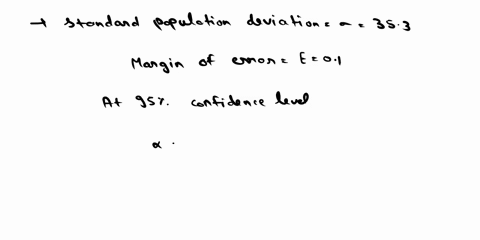 → standard population deviation = σ = 35.3
Margin of error = E = 0.1
At 95% confidence level
α .